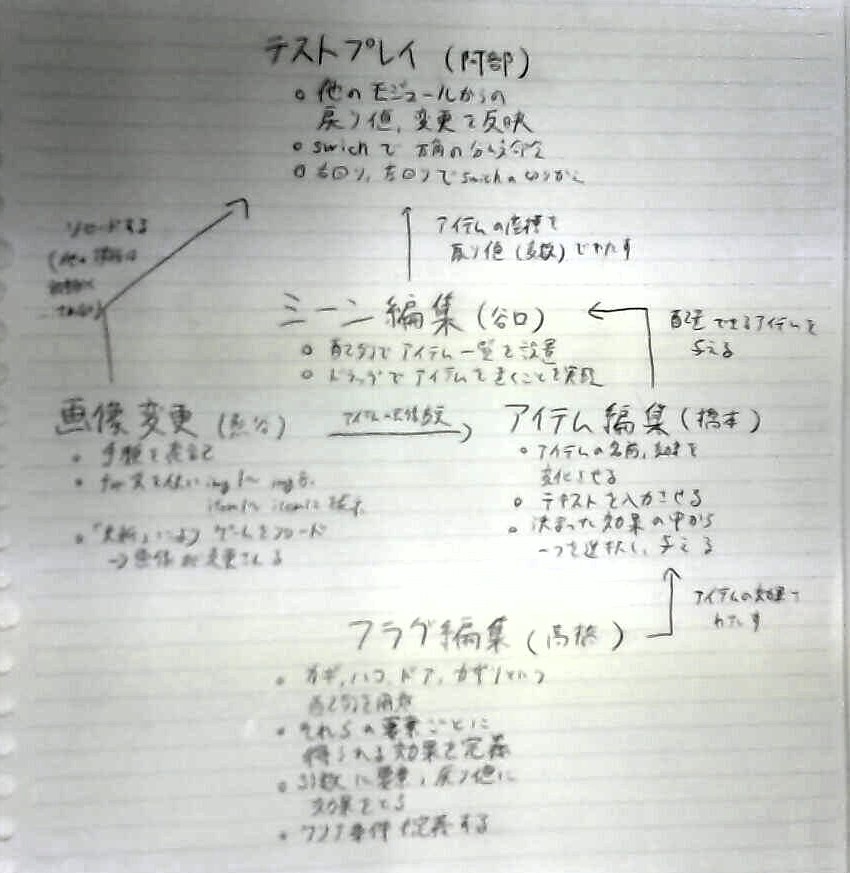 テストプレイ (阿部)
他のモジュールからの
戻り値、変更を反映
swichで 方角の分岐命令
右回り、左回りでswichの切りかえ
リロードする
アイテムの座標を
戻り値(多数)でわたす
シーン編集(谷口)
配列でアイテム一覧を設置
ドラッグでアイテムを置くことを実現
配置できるアイテムを
与える
画像変更
アイテムの画像
アイテム編集(橋本)
手順を表記
for文を使い img1〜img8、
item1〜item12
ゲームをリロード
→画像が変更される
アイテムの名前、効果を
変化させる
テキストを入力させる
決まった効果の中から
一つを選択し、与える
アイテムの効果を
わたす
フラグ編集(高橋)
カギ、ハコ、ドア、カザリといった
配列を用意
それらの要素ごとに
得られる効果を定義
引数に要素、戻り値に
効果をとる
クリア条件を定義する